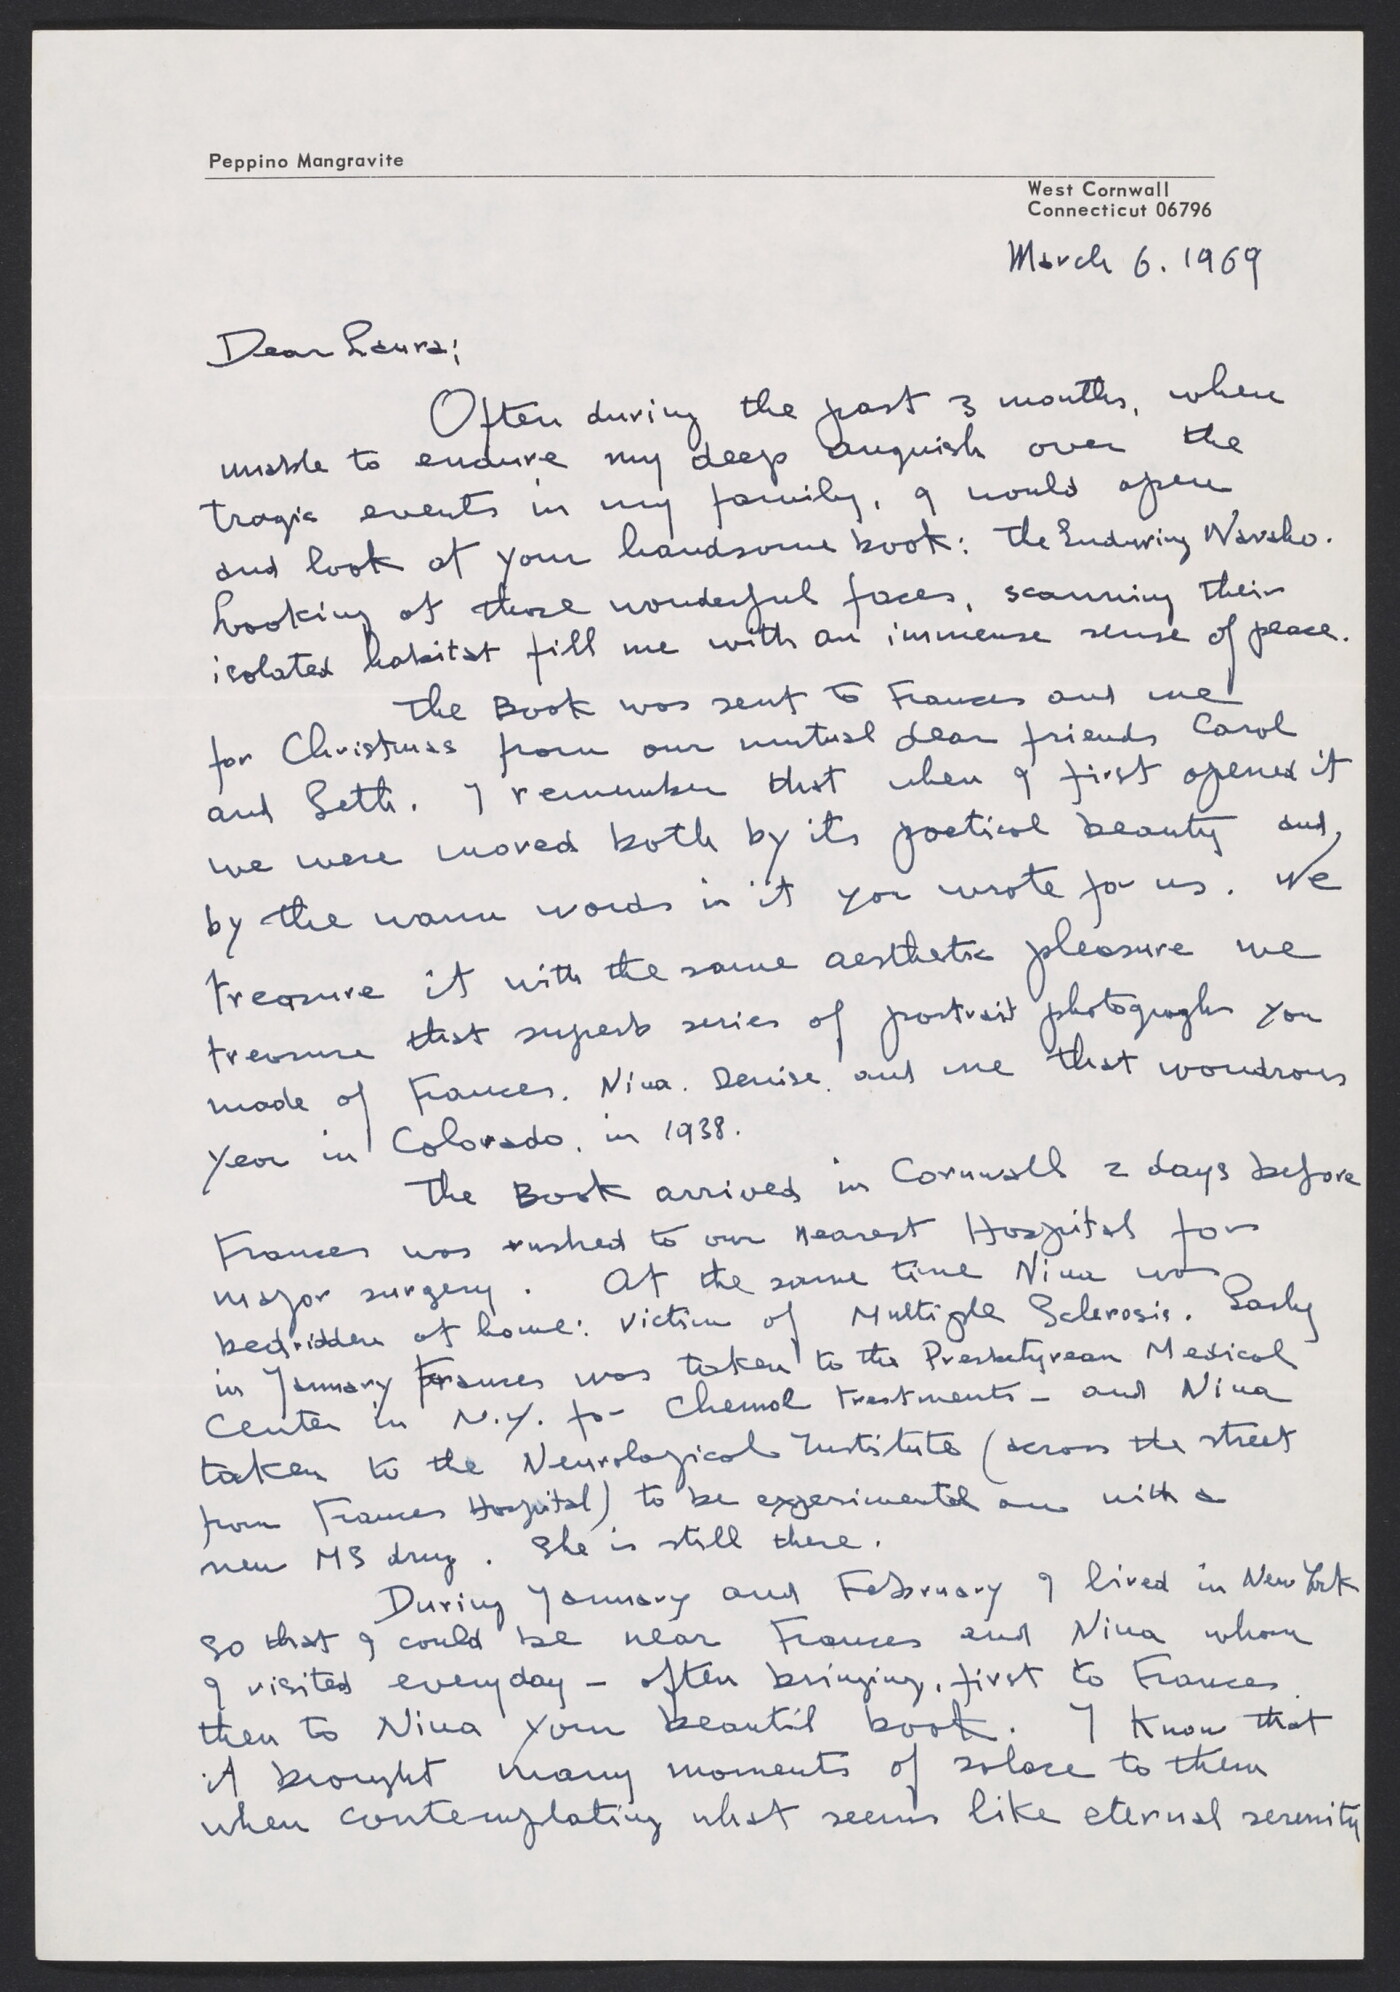 Peppino Mangravite
West Cornwall
Connecticut 06796
March 6. 1969
Dear Laura;
Often during the past 3 months, when
unable to endure my deep anguish over the
tragic events in my family, I would open
and look at your handsome book: The Enduring Navaho.
Looking at those wonderful faces, scanning their
isolated habitat fill me with an immense sense of peace.
The Book was sent to Frances and me
for Christmas from our mutual dear friends Carol
and Seth. I remember that when I first opened it
we were moved both by its poetical beauty and,
by the warm words in it you wrote for us. We
treasure it with the same aesthetic pleasure we
treasure that superb series of portrait photographs you
made of Frances, Nina, Denise, and me that wondrous
year in Colorado, in 1938.
The Book arrived in Cornwall 2 days before
Frances was rushed to our nearest Hospital for
major surgery. At the same time Nina was
bedridden at home: victim of Multiple Sclerosis. Early
in January Frances was taken to the Presbetyrean Medical
Center in N.Y. for Chemol treatments - and Nina
taken to the Neurological Institute (across the street
from Frances Hospital) to be experimented on with a
new MS drug. She is still there.
During January and February I lived in New York
so that I could be near Frances and Nina whom
I visited everyday - often bringing, first to Frances
then to Nina your beautil book. I know that
it brought many moments of solace to them
when contemplating what seems like eternal serenity